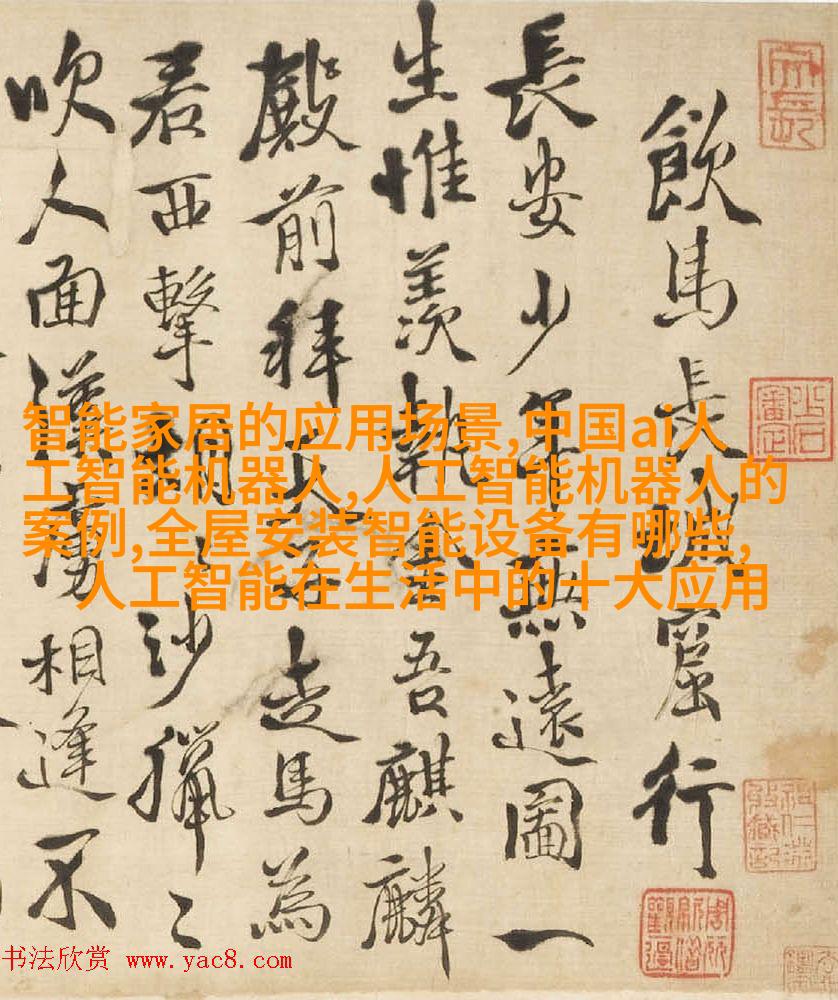 飲馬長城窟行
長安少年無遠圖一
生惟羨執金吾麒麟
殿前拜天子走馬為
君西擊胡〻沙獵〻
吹人面漢虜相逢不
智能家居的应用场景,中国ai人
工智能机器人,人工智能机器人的
案例,全屋安装智能设备有哪些,
人工智能在生活中的十大应用
书法欣赏 www.yac8.com